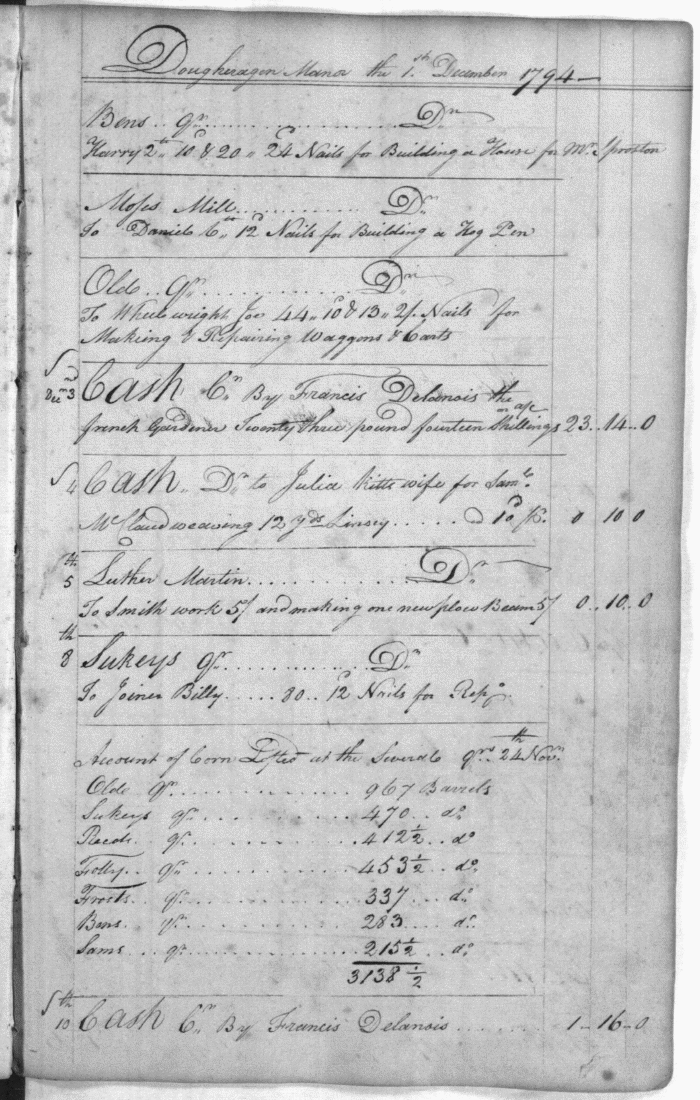 Dougheragen Manor the 1.st December 1794
Bens .. qr. .......... Dr
Harry 2lb 10 & 20 .. 24 Nails for Building a House for Mr Sproston
Moses Mill .......... Dr
To Daniels 6lb 12d Nails for Building a Hog Pen
Olde .. qr. .......... Dr
To Wheelwright Joe 44 .. 10d & 13 .. 2/. Nails for
Making & Repairing Waggons & Carts
Decm 3d Cash Cr. By Francis Delanois the
french Gardener Twenty three pound fourteen Shillings 23 .. 14 .. 0
4 Cash .. Dr. to Julia Kitts wife for Saml.
McClaud weaving 12 yds Linsey ...... @ 10d P. 0 10 0
5th Luther Martin .......... Dr
To Smith work 5/ and making one new plow Beam 5/ 0 .. 10 .. 0
8th Sukeys qr. .......... Dr
To Joiner Billy ..... 80 .. 12d Nails for Repg.
Account of Corn Lofted at the Severale qrs 24th Novr.
Olde qr. .......... 967 Barrels
Sukeys qr. .......... 470 .. do
qr. .......... 412 1/2 .. do
Folly .. qr. .......... 453 1/2 .. do
Frosts .. qr. .......... 337 .. do
Bens .. qr. .......... 283 .. do
Sams .. qr. .......... 215 1/2 .. do
3138 1/2
10th Cash Cr. By Francis Delanois ....... 1 - 16 - 0